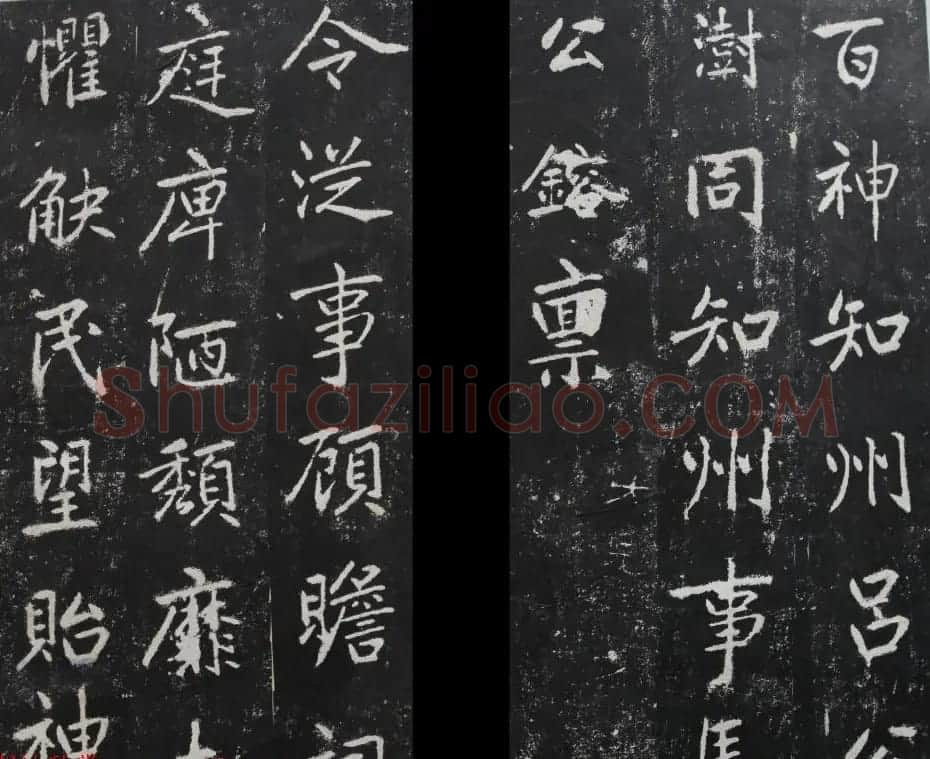 百神知州呂公
澍同知州事馬
公鎔禀
令涖事顧瞻祠
庭庳陋頹靡
懼觖民望貽神
Shufaziliao.COM